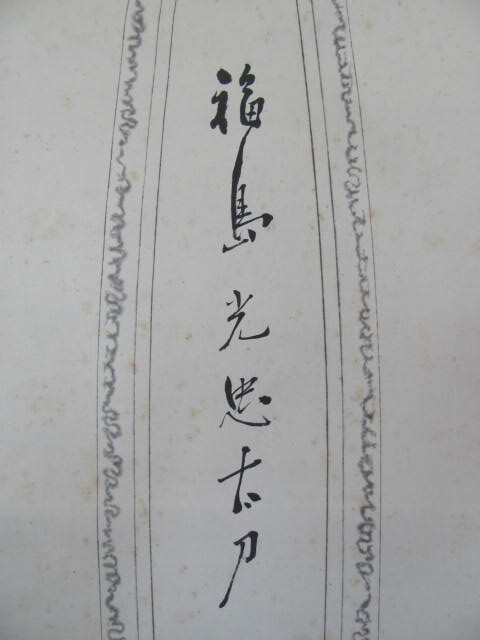 福島光忠太刀